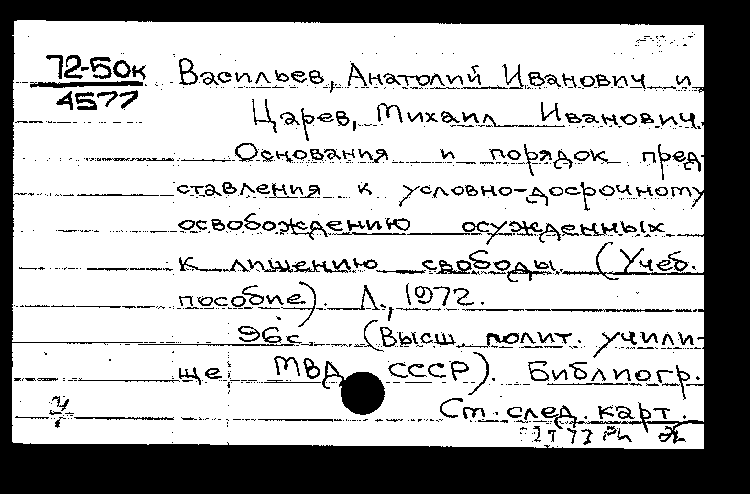 72-50к
4577
Васильев, Анатолий Иванович и
Царев, Михаил Иванович.
Основания и порядок пред-
ставления к условно-досрочному
освобождению осужденных
к лишению свободы. (Учеб.
пособие). Л., 1972.
96 с. (Высш. полит. учили-
ще МВД СССР). Библиогр.
См. след. карт.